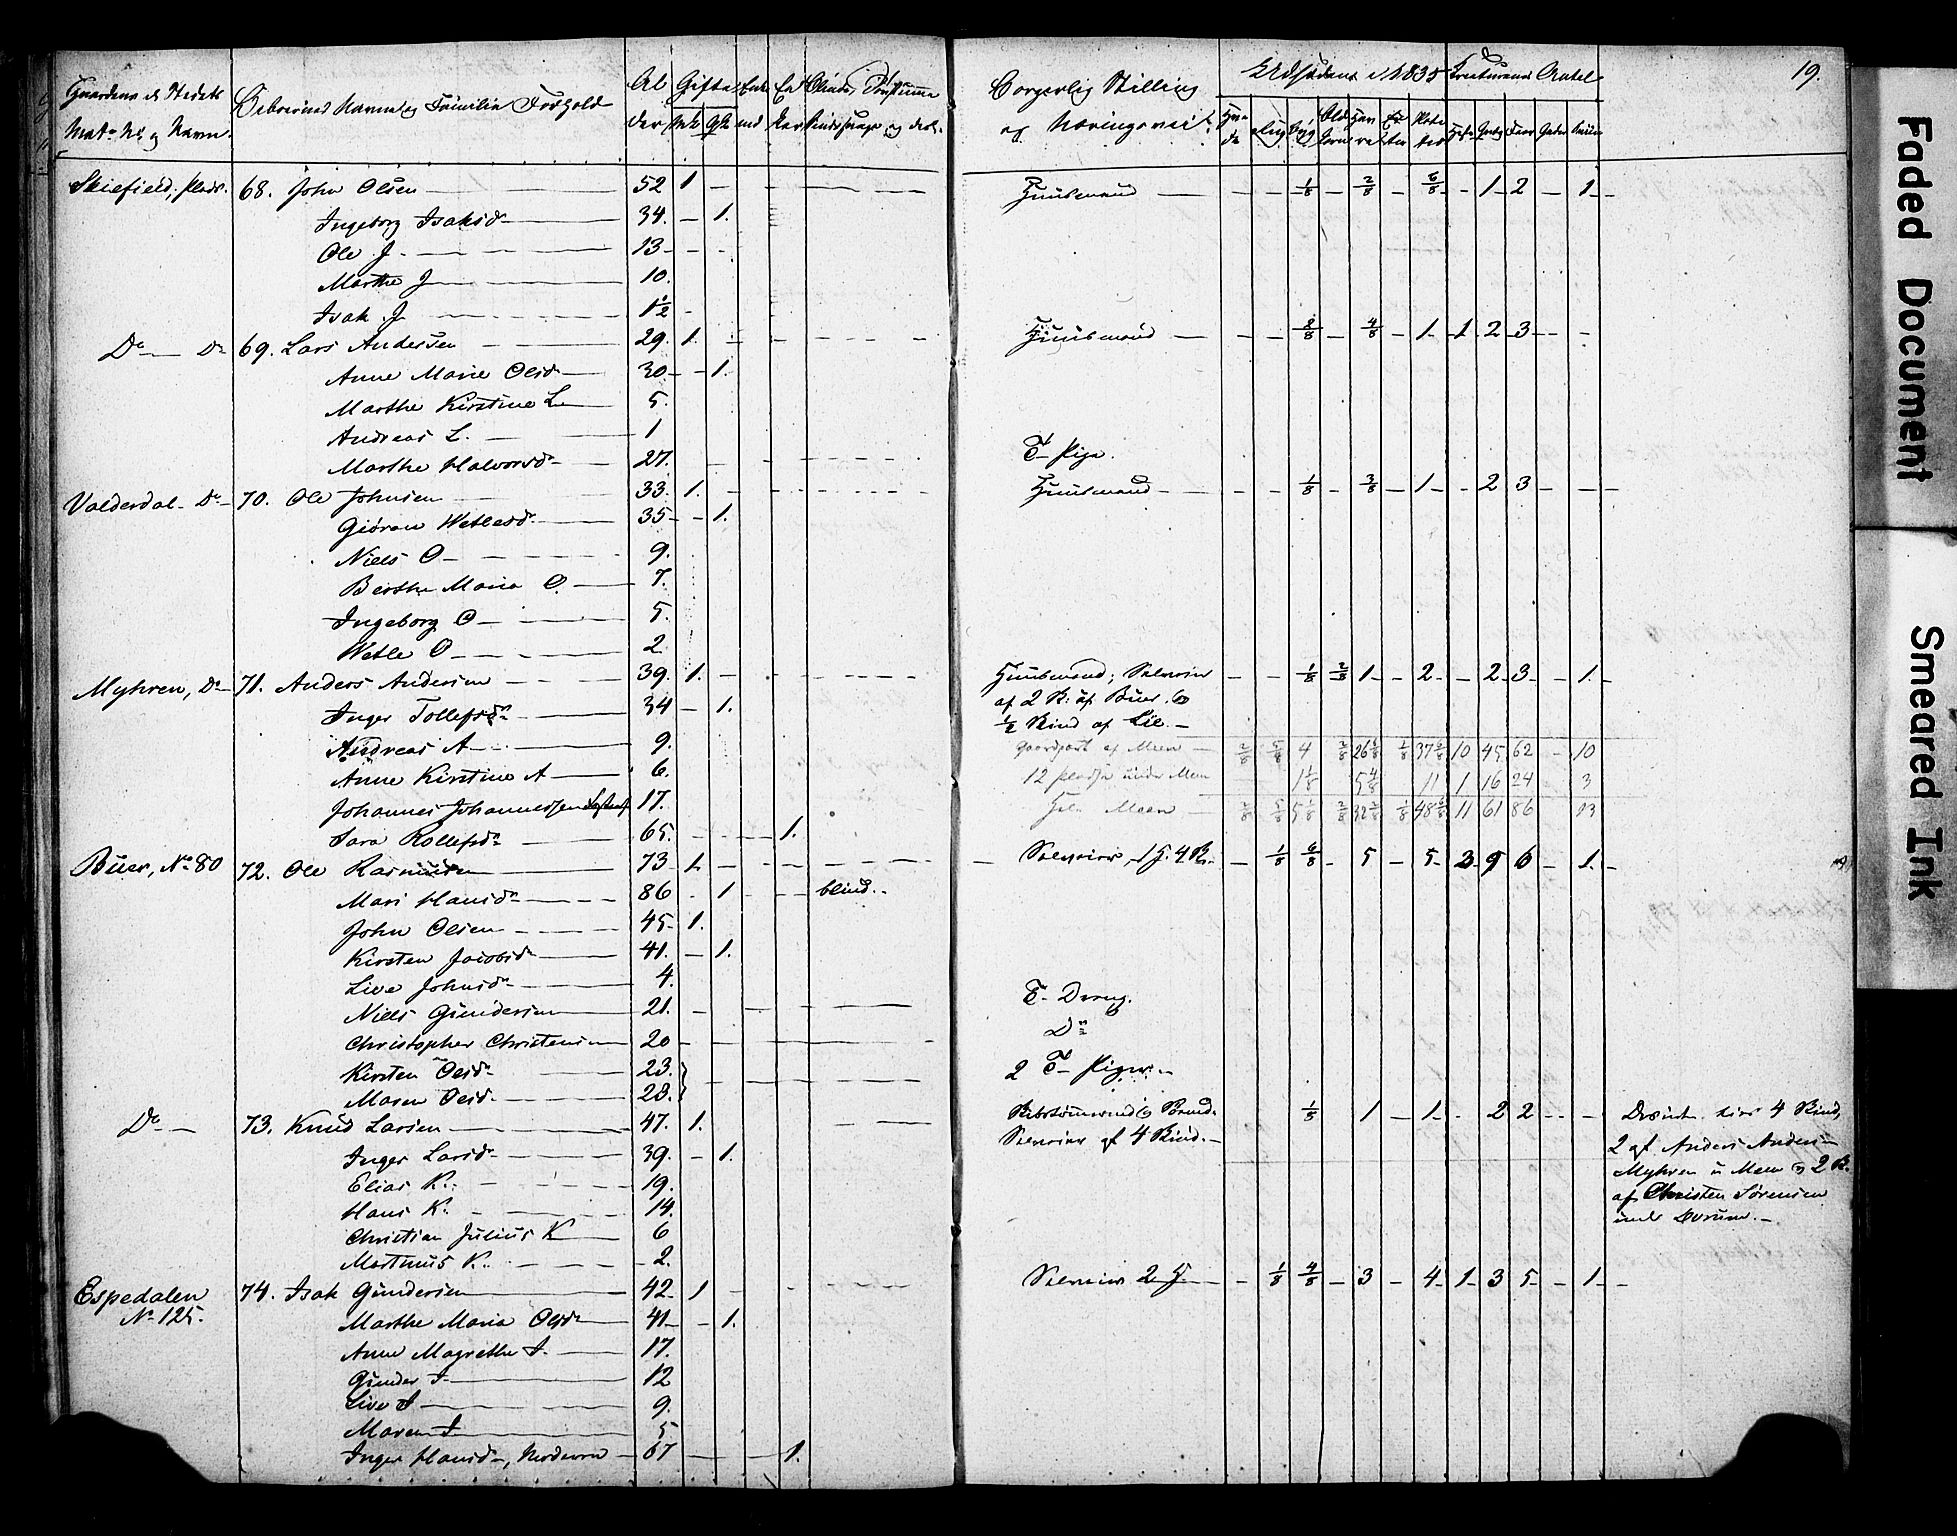 19.
Gaardens og Stedets Mat: No og Navn. Beboernes Navne og Familie Forhold Alder Gifte Mk Qk Enkemd Enker Blinde, Døvstumme Sindssvage og desl. Borgerlig Stilling og Næringsvei. Udsæden i 1835 Hvede Rug Byg Bld: korn Havre Erter Poteter Creaturenes Antal Heste Qvæg Faar Geder Sviin
Skiefield, Plads. 68. John Olsen 52 1 Huusmand 1/8 2/8 6/8 1 2 1
Ingeborg Isaksd. 34. 1.
Ole J. 13
Marthe J 10.
Isak J. 1 1/2
Do Do 69. Lars Andersen 29. 1. Huusmand 2/8 4/8 1 1 2 3
Anne Marie Olsd. 30 1.
Marthe Kirstine L. 5.
Andreas L. 1
Marthe Halvorsd. 27. T. Pige.
Valderdal Do 70. Ole Johnsen 33. 1. Huusmand 1/8 3/8 1 2 3
Giøran Wetlesd. 35 1.
Niels O 9.
Berthe Maria O. 7.
Ingeborg O 5.
Wetle O 2
Myhren, Do 71. Anders Andersen 39. 1. Huusmand; Selveier 1/8 2/8 1 2 2 3 1.
Inger Tollefsd. 34 1. af 2 K: af Buer, og
1/2 Skind af Lie.
Andreas A 9. Gaardpart af Meen 2/8 5/8 4 2/8 26 1/8 37 10 45 62 10
Anne Kirstine A 6. 12 pladse under Meen 1 1/8 5 4/8 11 1 16 24 3
Johannes Johannessen 17. Hele Meen 2/8 5/8 5 1/8 2/8 32 1/8 48 11 61 86 13
Sara Rollefsd. 65. 1.
Buer, No 80 72. Ole Rasmusen 73 1. Selveier, 1 H. 4 K. 1/8 6/8 5 5 3 9 6 1.
Mari Hansd. 86 1 blind.
John Olsen 45 1.
Kirsten Jacobsd. 41. 1.
Live Johnsd. 4.
Niels Gundersen 21. T. Dreng.
Christopher Christensen 20 Do
Kirsten Olsd. 23. 2 T. Piger.
Maren Olsd. 28.
Do 73. Knud Larsen 47. 1. Selveier af 4 Skind. 1/5 1 1 2 2
Inger Larsd. 39. 1.
Elias K. 19.
Hans K. 14.
Christian Julius K 6
Martinus K. 2.
4 Skind,
2 af Anders Andersen
Myhren u Meen og 2 K.
af Christen Sørensen
Espedalen No 125. 74. Isak Gundersen 42 1 Selveier 2 H. 1/8 4/8 3 4 1 3 5 1
Marthe Maria Olsd. 41 1.
Anne Magrethe I. 17.
Gunder I 12
Live I 9.
Maren I 5
Inger Hansd., 67 1.
Faded Document
Smeared Ink